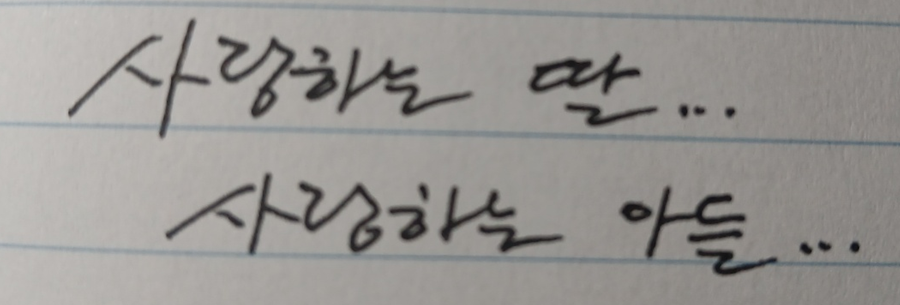 사랑하는 딸...
사랑하는 아들...